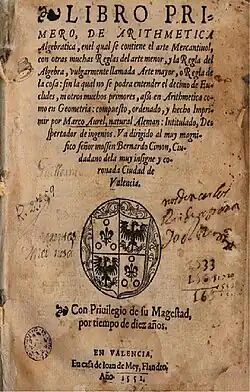 LIBRO PRI-
MERO, DE ARITHMETICA
Algebratica, enel qual se contiene el arte Mercantiuol,
con otras muchas Reglas del arte menor, y la Regla del
Algebra, vulgarmente llamada Arte mayor, o Regla de
la cosa: sin la qual no se podra entender el decimo de Eu-
clides, ni otros muchos primores, assi en Arithmetica co-
mo en Geometria: compuesto, ordenado, y hecho Impri-
mir por Marco Aurel, natural Aleman: Intitulado, Des-
pertador de ingenios. Va dirigido al muy magni-
fico señor mossen Bernardo Cimon, Ciu-
dadano dela muy insigne y co-
ronada Ciudad de
Valencia.
Con Priuilegio de su Magestad,
por tiempo de diez años.
EN VALENCIA,
En casa de Ioan de Mey, Flandro,
Año 1552.